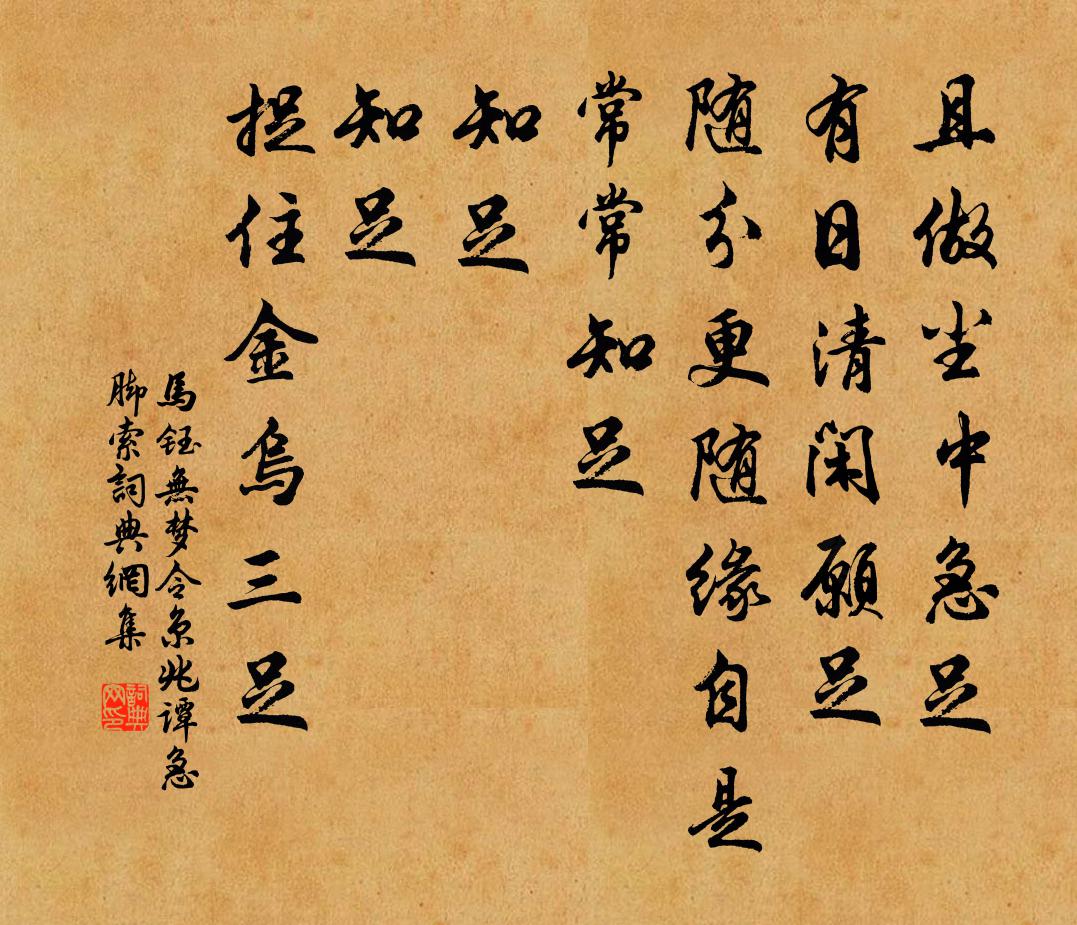 且做尘中急足
有日清閑願足
随分更随缘自是
常常知足
知足
知足
捉住金烏三足
馬鈺無梦令京兆譚急
脚索詞典網集
詞典
网印